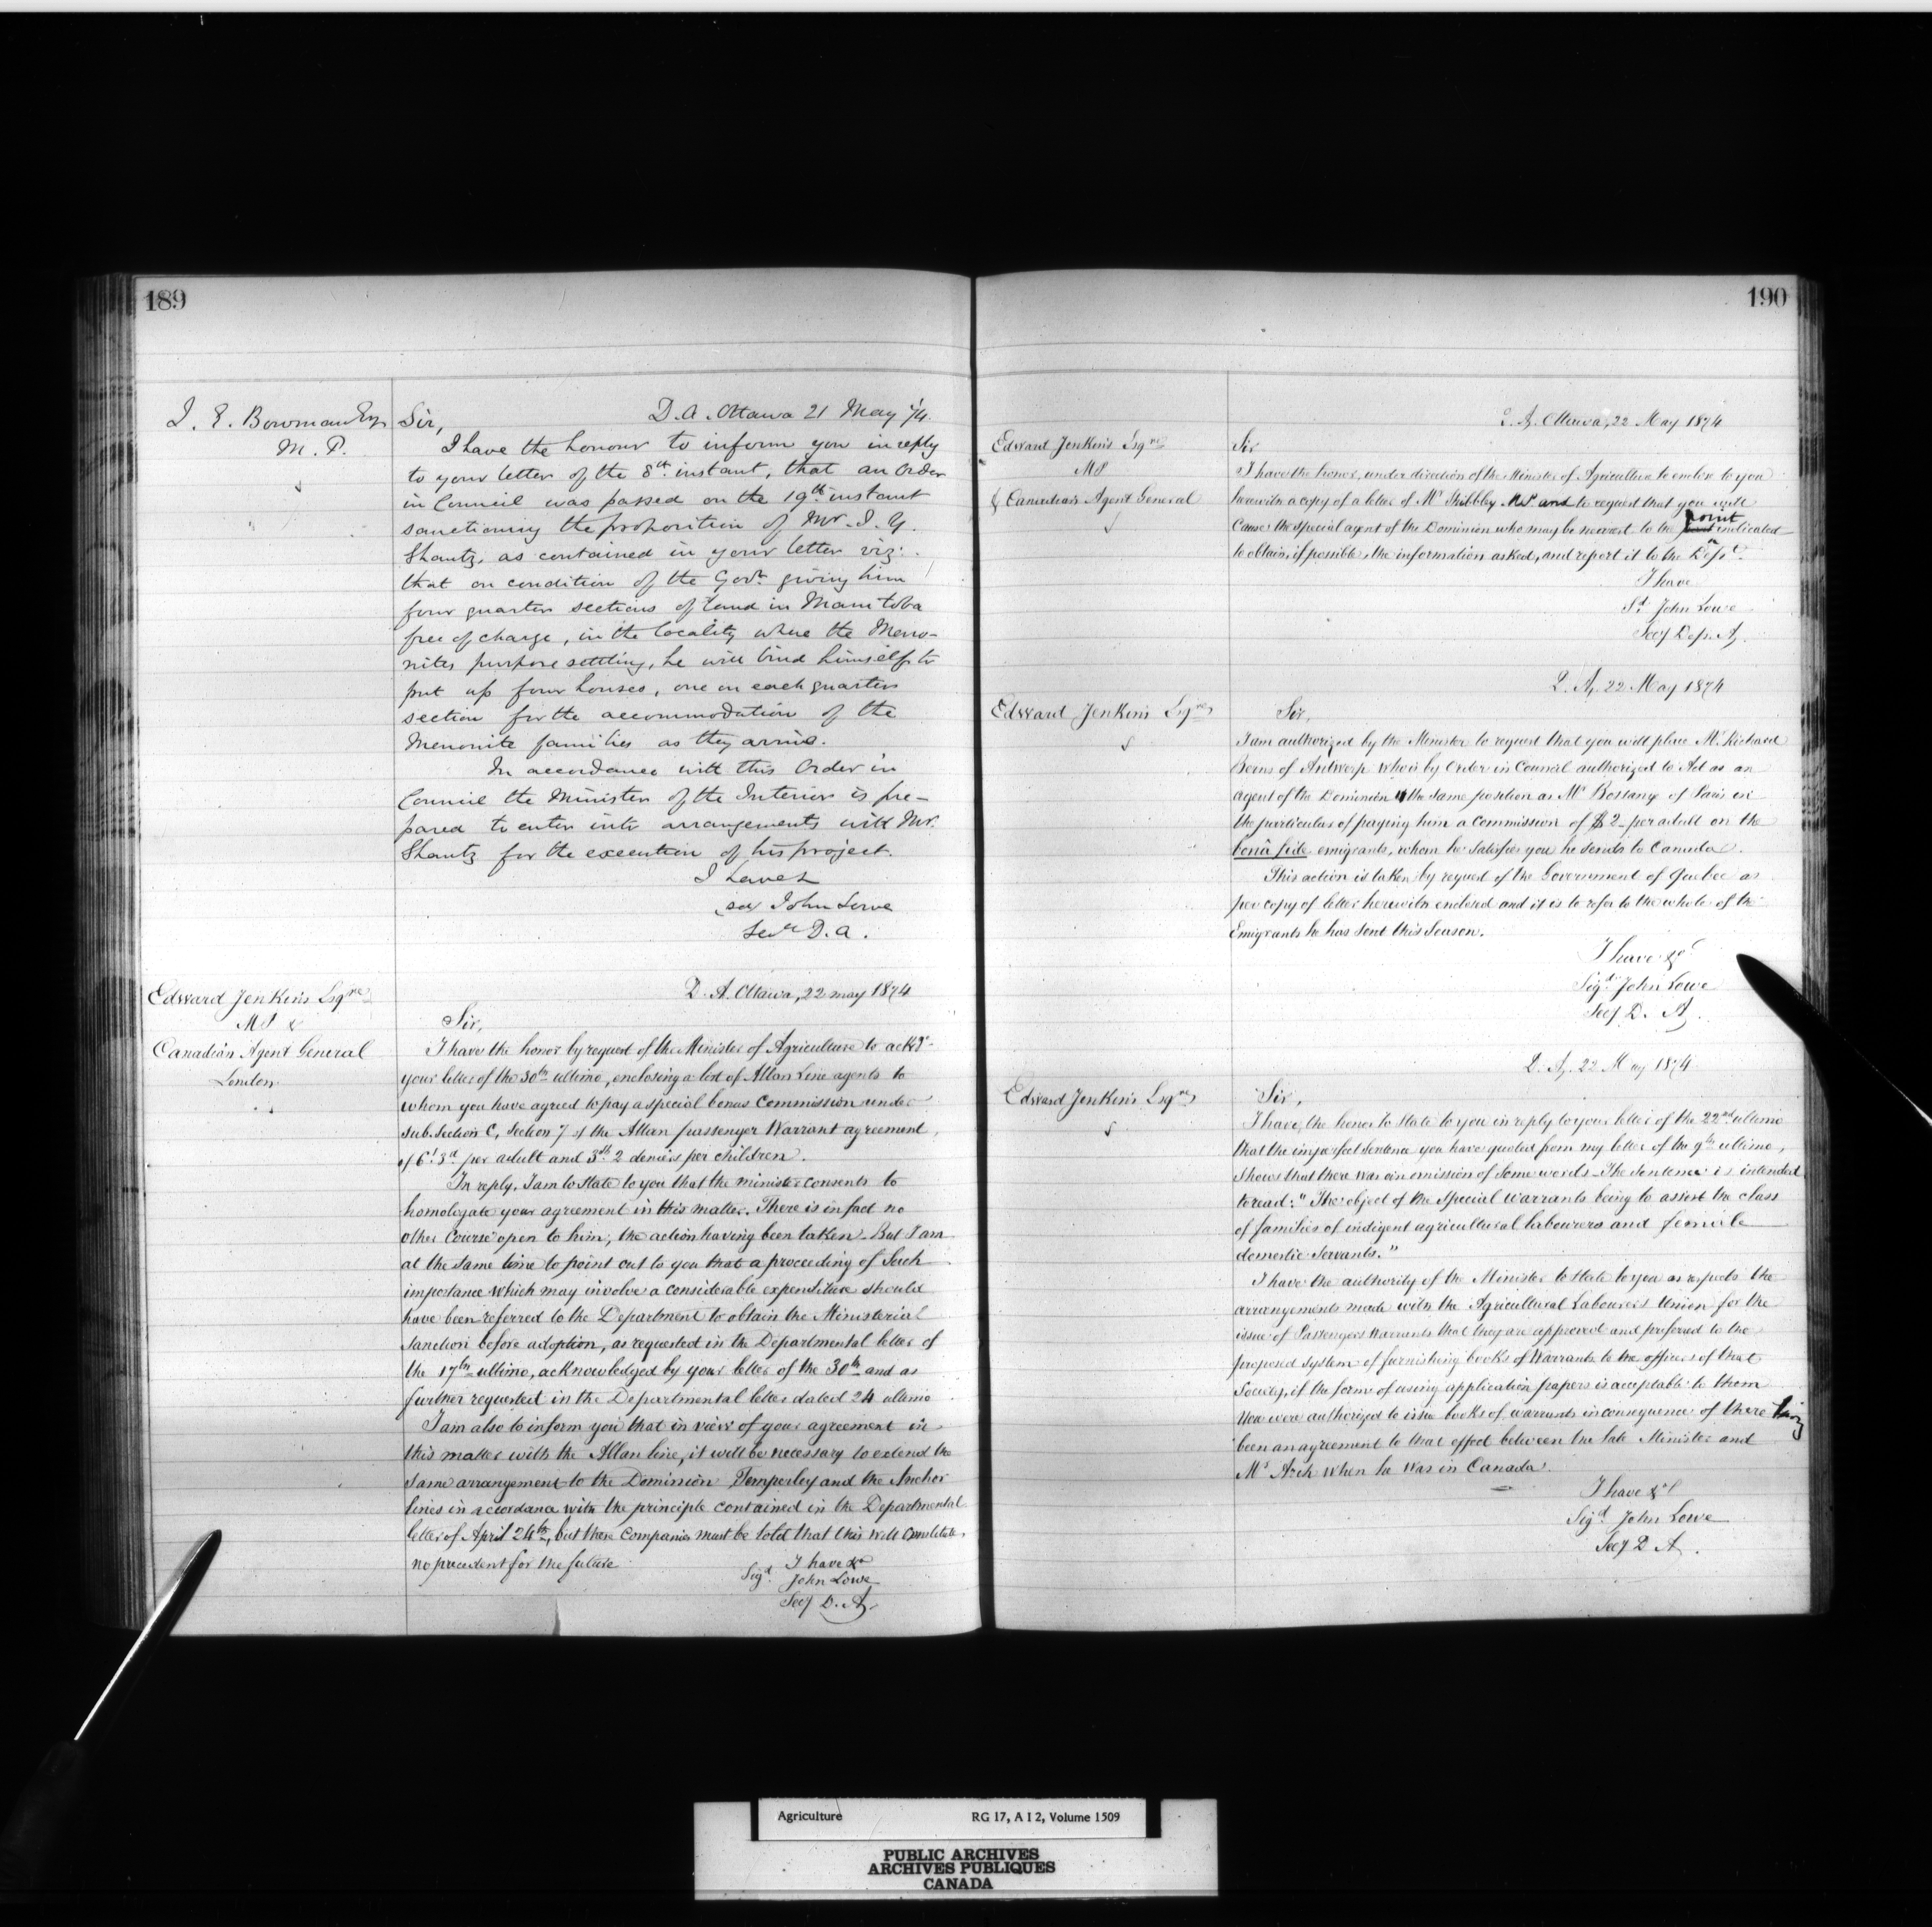 189
I. E. Bowman Esq
M. P.
D. A. Ottawa 21 May /74
Sir,
I have the honour to inform you in reply
to your letter of the 8th instant, that an Order
in Council was passed on the 19th instant
sanctioning the proposition of Mr. J. Y.
Shantz, as contained in your letter viz:
that on condition of the Govt. giving him
four quarter sections of land in Manitoba
free of charge, in the locality where the Meno-
nites purpose settling, he will bind himself to
put up four houses, one on each quarter
section for the accommodation of the
Menonite families as they arrive.
In accordance with this Order in
Council the Minister of the Interior is pre-
pared to enter into arrangements with Mr.
Shantz for the execution of his project.
I have &
sd John Lowe
Secy D. A.
Edward Jenkins Esqre
MP &
Canadian Agent General
London
D. A. Ottawa, 22 may 1874
Sir,
I have the honor by request of the Minister of Agriculture to ackge
your letter of the 30th ultimo, enclosing a list of Allan Line agents to
whom you have agreed to pay a special bonus Commission under
sub. Section C, Section 7 of the Allan passenger Warrant agreement,
of 6s. 3d per adult and 3sh 2 deniers per children.
In reply, I am to state to you that the minister consents to
homologate your agreement in this matter. There is in fact no
other Course open to him; the action having been taken. But I am
at the same time to point out to you that a proceeding of Such
importance which may involve a considerable expenditure should
have been referred to the Department to obtain the Ministerial
Sanction before adoption, as requested in the Departmental letter of
the 17th ultimo, acknowledged by your letter of the 30th and as
further requested in the Departmental letter dated 24 ultimo
I am also to inform you that in view of your agreement in
this matter with the Allan line, it will be necessary to extend the
same arrangement to the Dominion, Temperley and the Anchor
lines in accordance with the principle contained in the Departmental
letter of April 24th, but these Companies must be told that this will constitute
no precedent for the future
I have &c
Sigd. John Lowe
Secy D. A.
190
D. A. Ottawa, 22 May 1874
Edward Jenkins Esqre
MP
& Canadian Agent General
Sir
I have the honor, under direction of the Minister of Agriculture to enclose to you
herewith a copy of a letter of Mr Skibbley MP and to request that you will
Cause the special agent of the Dominion who may be nearest to the point indicated
to obtain, if possible, the information asked, and report it to the Dept.
I have
Sd John Lowe
Secy Dep. A.
D. A. 22 May 1874
Edward Jenkins Esqre
Sir,
I am authorized by the Minister to request that you will place Mr. Richard
Berns of Antwerp who is by Order in Council authorized to Act as an
agent of the Dominion in the same position as Mr Bossange of Paris in
the particulars of paying him a Commission of $2 per adult on the
bonâ fide emigrants, whom he satisfies you he sends to Canada.
This action is taken by request of the Government of Quebec as
per copy of letter herewith enclosed and it is to refer to the whole of the
Emigrants he has sent this Season.
I have &c
Sigd John Lowe
Secy D. A.
D. A. 22 May 1874
Edward Jenkins Esqre
Sir,
I have the honor to State to you in reply to your letter of the 22nd ultimo
that the imperfect sentence you have quoted from my letter of the 9th ultimo,
shows that there was an omission of some words. The sentence is intended
to read: "The object of the Special Warrants being to assist the class
of families of indigent agricultural labourers and female
domestic servants."
I have the authority of the Minister to state to you as respects the
arrangements made with the Agricultural Labourers Union for the
issue of Passengers Warrants that they are approved and preferred to the
proposed system of furnishing books of Warrants to the officers of that
Society, if the form of using application papers is acceptable to them
You were authorized to issue books of warrants in consequence of there having
been an agreement to that effect between the late Minister and
Mr Arch when he was in Canada.
I have &c
Sigd John Lowe
Secy D. A.
Agriculture RG 17, A I 2, Volume 1509
PUBLIC ARCHIVES
ARCHIVES PUBLIQUES
CANADA